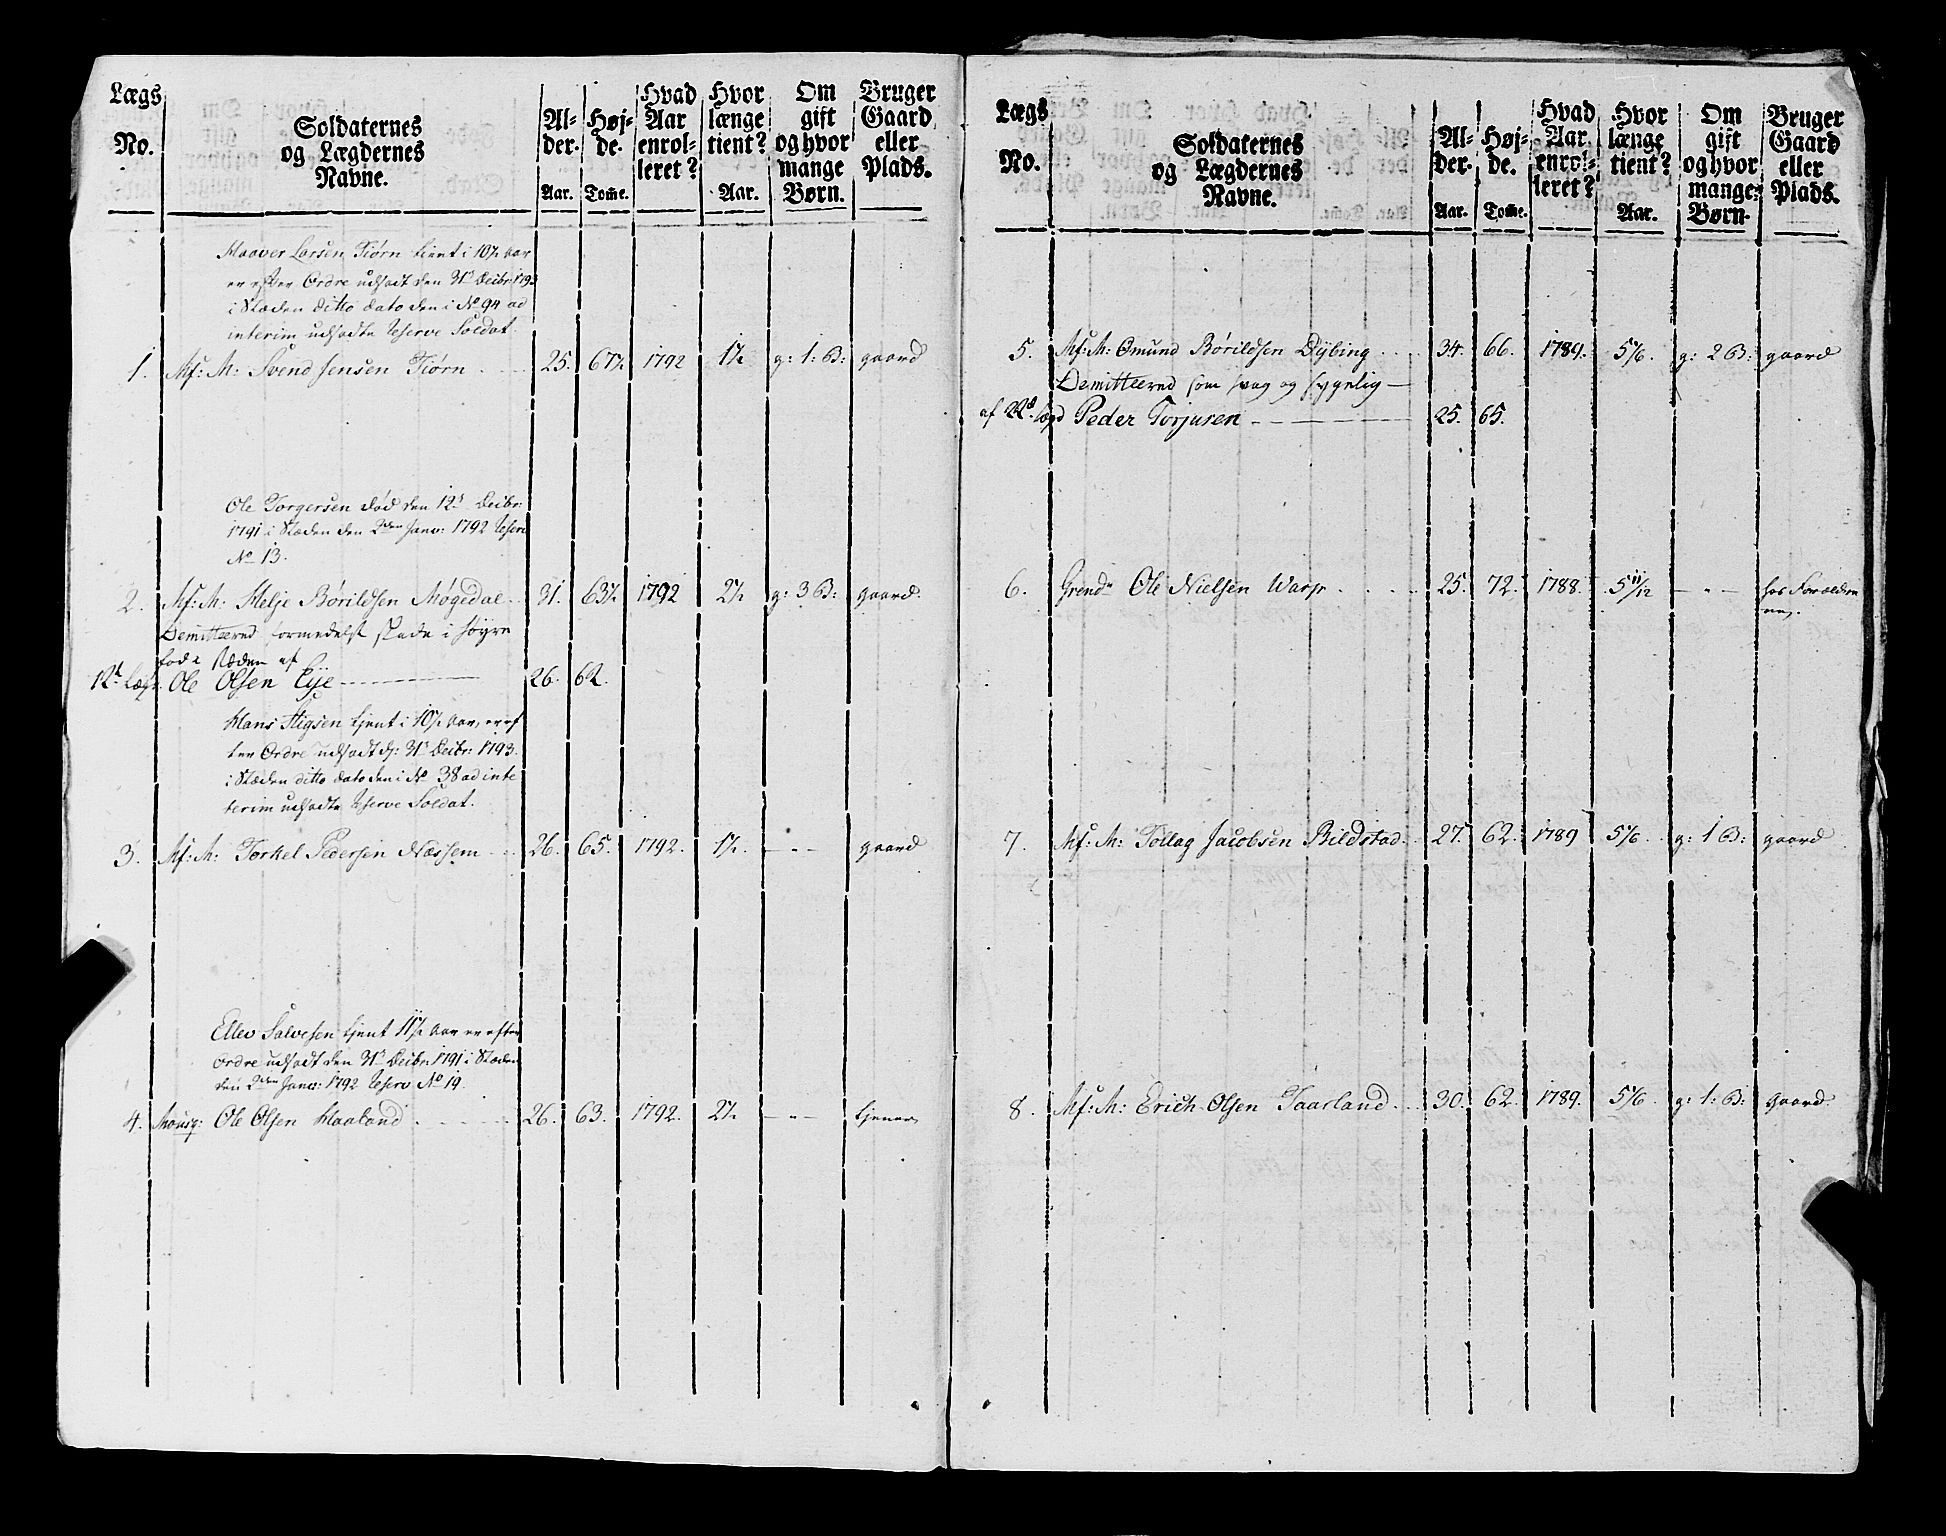 Lægs No. | Soldaternes og Lægdernes Navne. | Alder. Aar. | Højde. Tome. | Hvad Aar enrolleret? | Hvor længe tient? Aar. | Om gift og hvor mange Børn. | Bruger Gaard eller Plads.
Haaver Larsen Tiørn tient i 10½ aar
er efter Ordre udsadt den 31t Decbr: 1793
i Stæden ditto dato den i No 94 ad
interim udsadte Reserve Soldat.
1. Ms: M: Svend Jensen Tiørn 25. 67½ 1792 1½ g: 1: B: gaard
Ole Torgersen død den 12t Decbr:
1791 i Stæden den 2den Janv: 1792 Reserv
No 13.
2. Ms: M: Helje Børildsen Møgedal 31. 63½ 1792 2½ g: 3 B: gaard.
Demitteered formedelst skade i høyre
fod i stæden af
12t Lægd Ole Olsen Eje 26. 62.
Hans Stigsen tjent i 10½ aar, er ef
ter Ordre udsadt d: 31t Decbr: 1793.
i Stæden ditto dato den i No 38 ad inte
terim udsadte Reserve Soldat.
3. Ms: M: Torkel Pedersen Næssem 26. 65. 1792. 1½. - " - gaard
Ellev Salvesen tjent 11½ aar er efter
ordre udsadt den 31t Decbr: 1791 i Stæden
den 2den Janv: 1792 Reserv No 19.
4. Mousq: Ole Olsen Haaland 26. 63. 1792. 2½ - " - tjener
Lægs No. | Soldaternes og Lægdernes Navne. | Alder. Aar. | Højde. Tome. | Hvad Aar enrolleret? | Hvor længe tient? Aar. | Om gift og hvor mange Børn. | Bruger Gaard eller Plads.
5. Ms: M: Omund Børildsen Dÿbing 34. 66. 1789. 5⅚. g: 2 B: gaard
Demitteered som svag og sygelig
af 22d Lægd Peder Torjusen 25. 65.
6. Grend: Ole Nielsen Warp 25. 72. 1788. 5 11/12 - " - hos Forældre
ne.
7. Ms: M: Tollag Jacobsen Bildstad 27. 62. 1789 5⅚. g: 1 B: gaard
8. Ms: M: Erich Olsen Taarland 30. 62. 1789. 5⅚ g: 1: B: gaard.